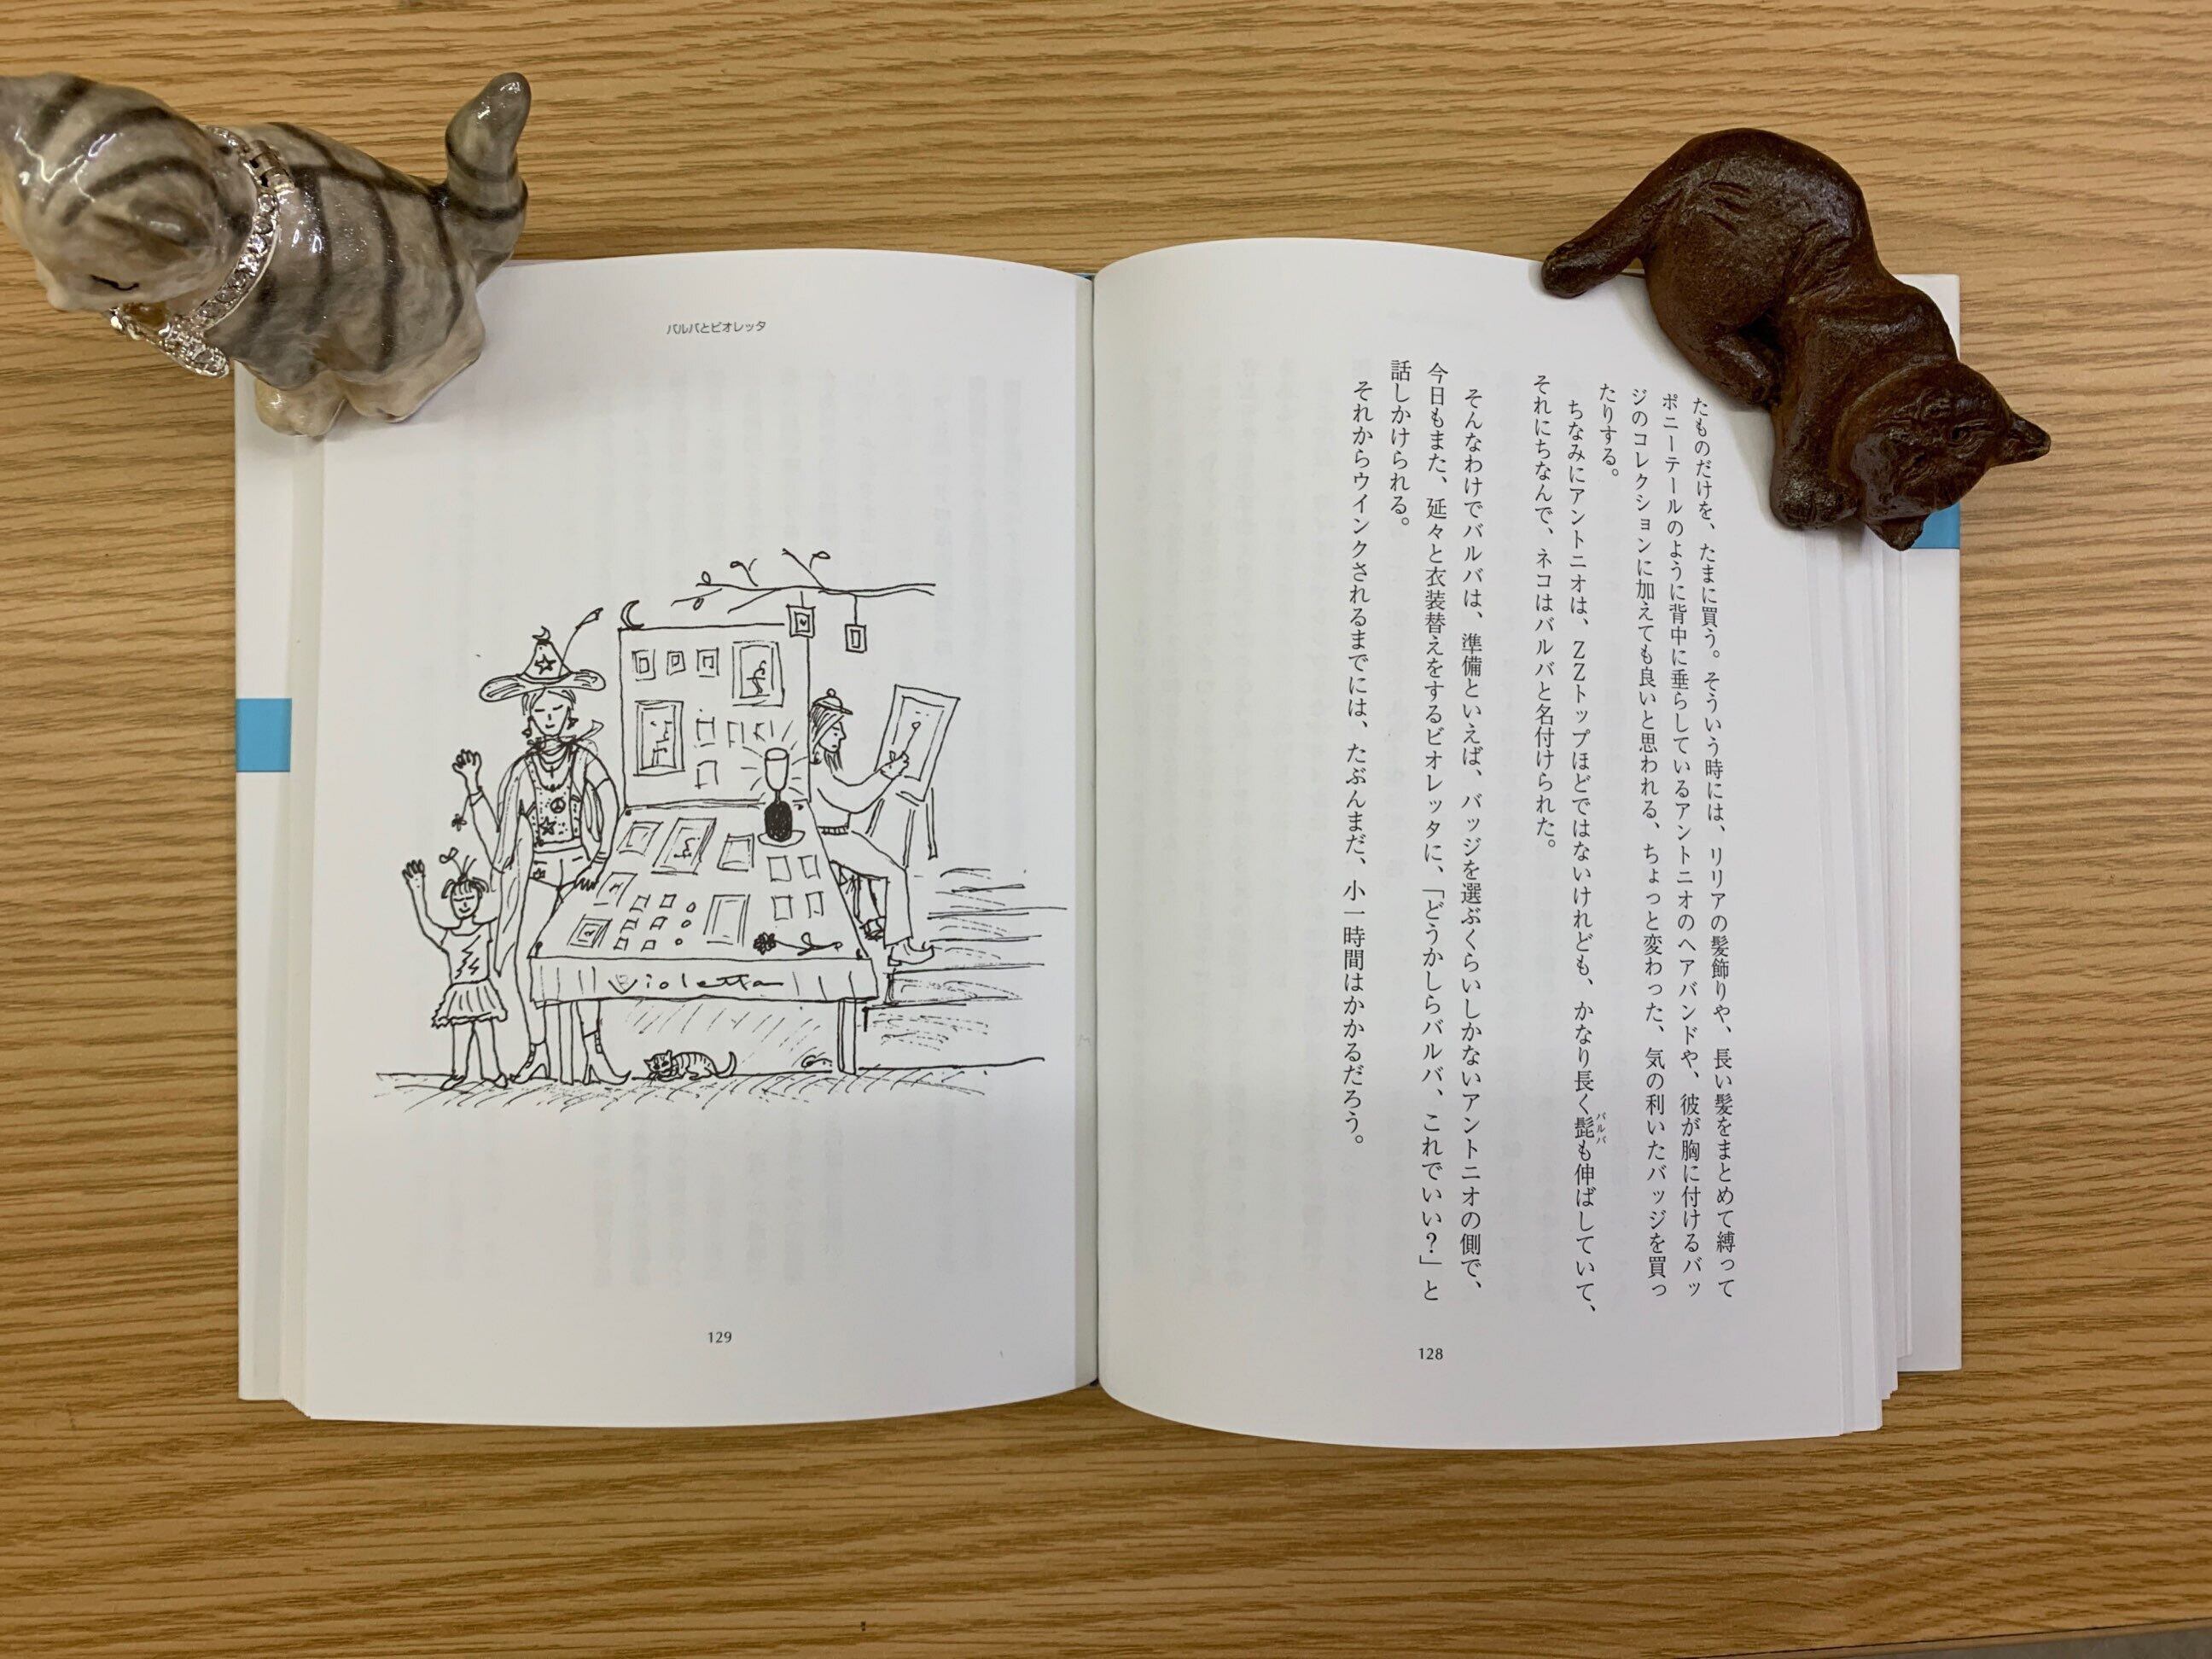 たものだけを、たまに買う。そういう時には、リリアの髪飾りや、長い髪をまとめて縛って
ポニーテールのように背中に垂らしているアントニオのヘアバンドや、彼が胸に付けるバッ
ジのコレクションに加えても良いと思われる、ちょっと変わった、気の利いたバッジを買っ
たりする。
ちなみにアントニオは、ZZトップほどではないけれども、かなり長く髭も伸ばしていて、
バルバ
それにちなんで、ネコはバルバと名付けられた。
そんなわけでバルバは、準備といえば、バッジを選ぶくらいしかないアントニオの側で、
今日もまた、延々と衣装替えをするビオレッタに、「どうかしらバルバ、これでいい？」と
話しかけられる。
それからウインクされるまでには、たぶんまだ、小一時間はかかるだろう。
128
バルバとビオレッタ
Violetta
129